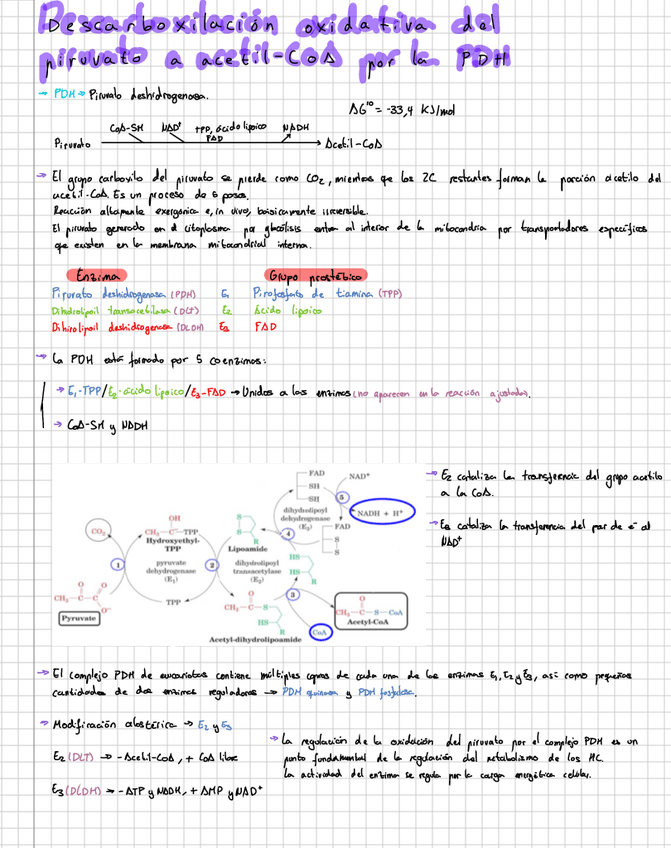 Descarboxilación oxidativa del
piruvato a acetil-CoA por la PDH
→ PDH → Piruvato deshidrogenosa.
ΔG'° = -33,4 KJ/mol
CoA-SH NAD⁺ TPP, ácido lipoico NADH
FAD
Piruvato → Acetil-CoA
→ El grupo carboxilo del piruvato se pierde como CO₂, mientras que los 2C restantes forman la porción acetilo del
acetil-CoA. Es un proceso de 5 pasos.
Reacción altamente exergónica e, in vivo, básicamente irreversible.
El piruvato generado en el citoplasma por glucólisis entra al interior de la mitocondria por transportadores específicos
que existen en la membrana mitocondrial interna.
Enzima Grupo prostético
Piruvato deshidrogenasa (PDH) E₁ Pirofosfato de tiamina (TPP)
Dihidrolipoil transacetilasa (DLT) E₂ Ácido lipoico
Dihirolipoil deshidrogenasa (DLDH) E₃ FAD
→ La PDH está formada por 5 coenzimas:
→ E₁-TPP/E₂-ácido lipoico/E₃-FAD → Unidos a las enzimas (no aparecen en la reacción ajustada).
→ CoA-SH y NADH
→ E₂ cataliza la transferencia del grupo acetilo
a la CoA.
→ E₃ cataliza la transferencia del par de e⁻ al
NAD⁺
FAD
SH
SH
NAD⁺
5
NADH + H⁺
dihydrolipoyl
dehydrogenase
(E₃)
FAD
S
S
CO₂
OH
CH₃—C—TPP
Hydroxyethyl-
TPP
S
S
R
Lipoamide
4
HS
HS
R
1
pyruvate
dehydrogenase
(E₁)
2
dihydrolipoyl
transacetylase
(E₂)
3
TPP
O O
CH₃—C—C
O⁻
Pyruvate
O
CH₃—C—S
HS
R
Acetyl-dihydrolipoamide
CoA
O
CH₃—C—S—CoA
Acetyl-CoA
→ El complejo PDH de eucariotas contiene múltiples copias de cada una de las enzimas E₁, E₂ y E₃, así como pequeñas
cantidades de dos enzimas reguladoras → PDH quinasa y PDH fosfatasa.
→ Modificación alostérica → E₂ y E₃
E₂ (DLT) → - Acetil-CoA, + CoA libre
E₃ (DLDH) → - ATP y NADH, + AMP y NAD⁺
→ La regulación de la oxidación del piruvato por el complejo PDH es un
punto fundamental de la regulación del metabolismo de los HC.
La actividad del enzima se regula por la carga energética celular.